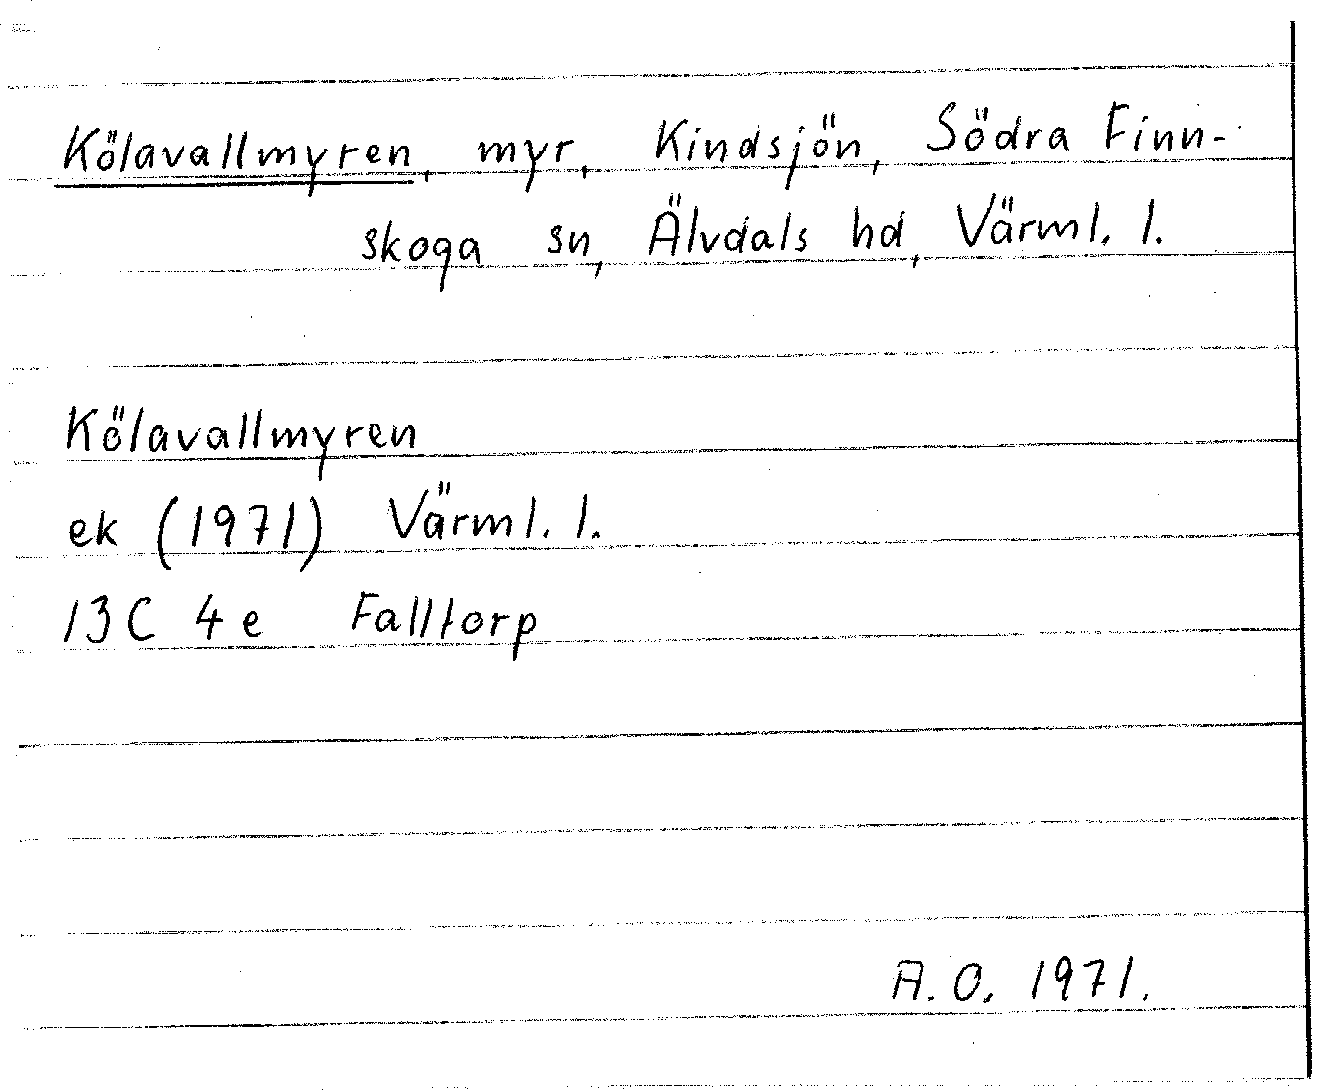 Kölavallmyren, myr, Kindsjön, Södra Finn-
skoga sn, Älvdals hd, Värml. l.
Kölavallmyren
ek (1971) Värml. l.
13C 4e Falltorp
A.O. 1971.